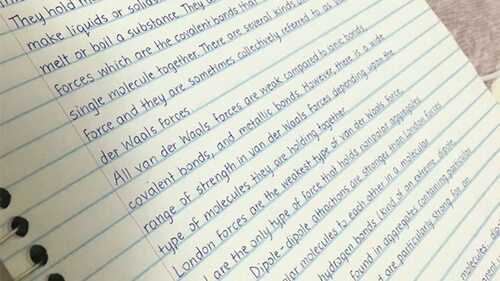 They hold the
make liquids or solids
melt or boil a substance. They
forces which are the covalent bonds that
single molecule together. There are several kinds
force and they are sometimes collectively referred to as van
der Waals forces.
All van der Waals forces are weak compared to ionic bonds,
covalent bonds, and metallic bonds. However there is a wide
range of strength in van der Waals forces depending upon the
type of molecules they are holding together.
London forces are the weakest type of van der Waals force,
are the only type of force that holds nonpolar aggregates
Dipole-dipole attractions are stronger than London forces
molecules to each other in a molecular
hydrogen bonds (kind of an extreme dipole
found in aggregates containing particular
are particularly strong for an
molecules.